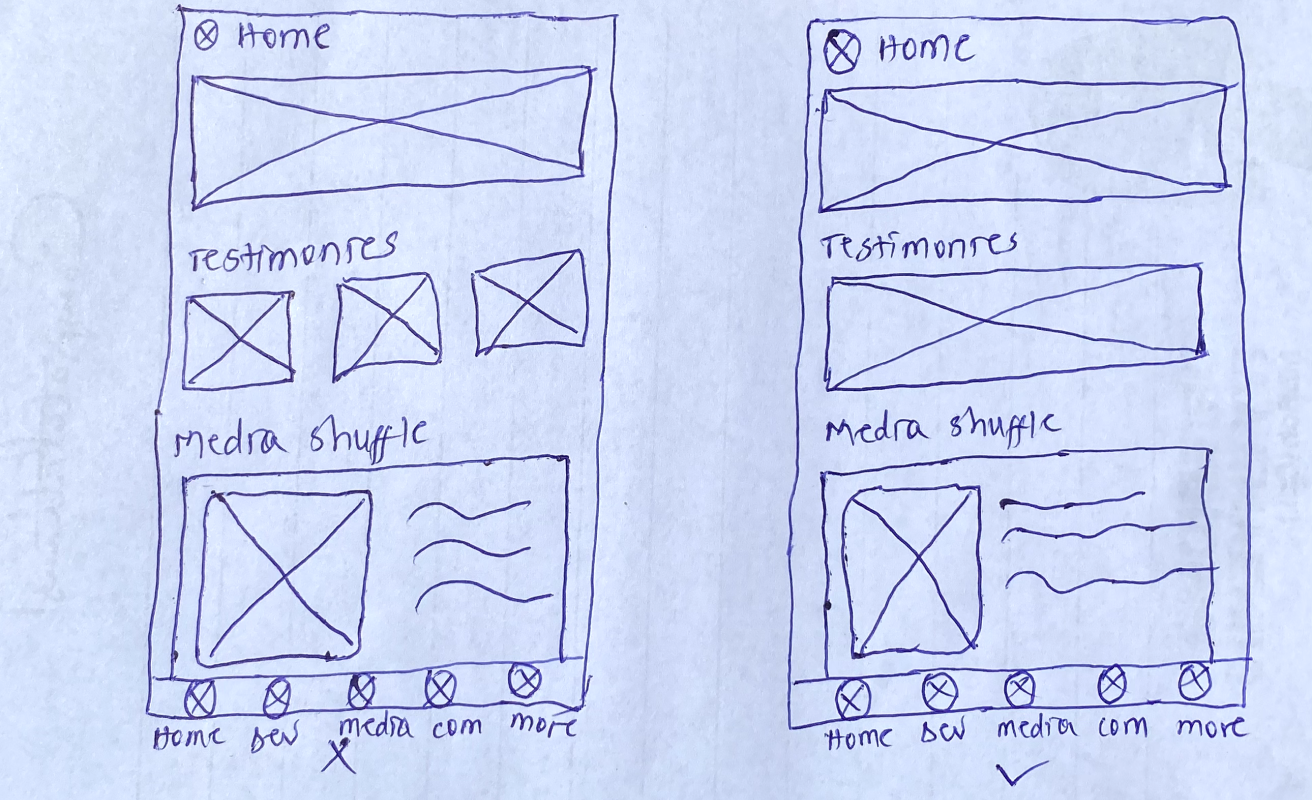 Home
Testimonies
Media shuffle
Home Dev media com more
X
Home
Testimonies
Media shuffle
Home Dev media com more
✓